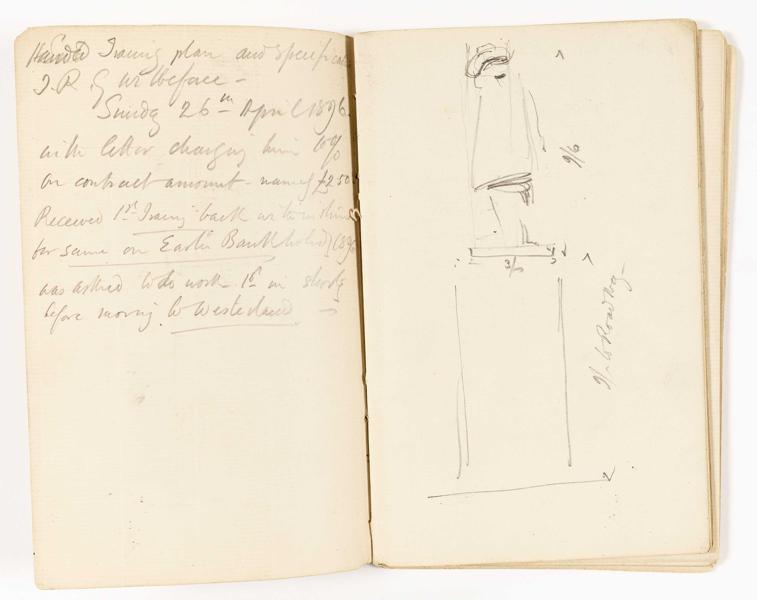 Handed Tracing plan and specific
J.P.
Sundy 26th April 1896
with letter charging him 10%
on contract amount - namely £250
Received 1st Tracing back with
for same on Easter Bank holid 1896
was asked to do work 1st in
before moving to Westerland
9/6
3/6
9/- to Roadway